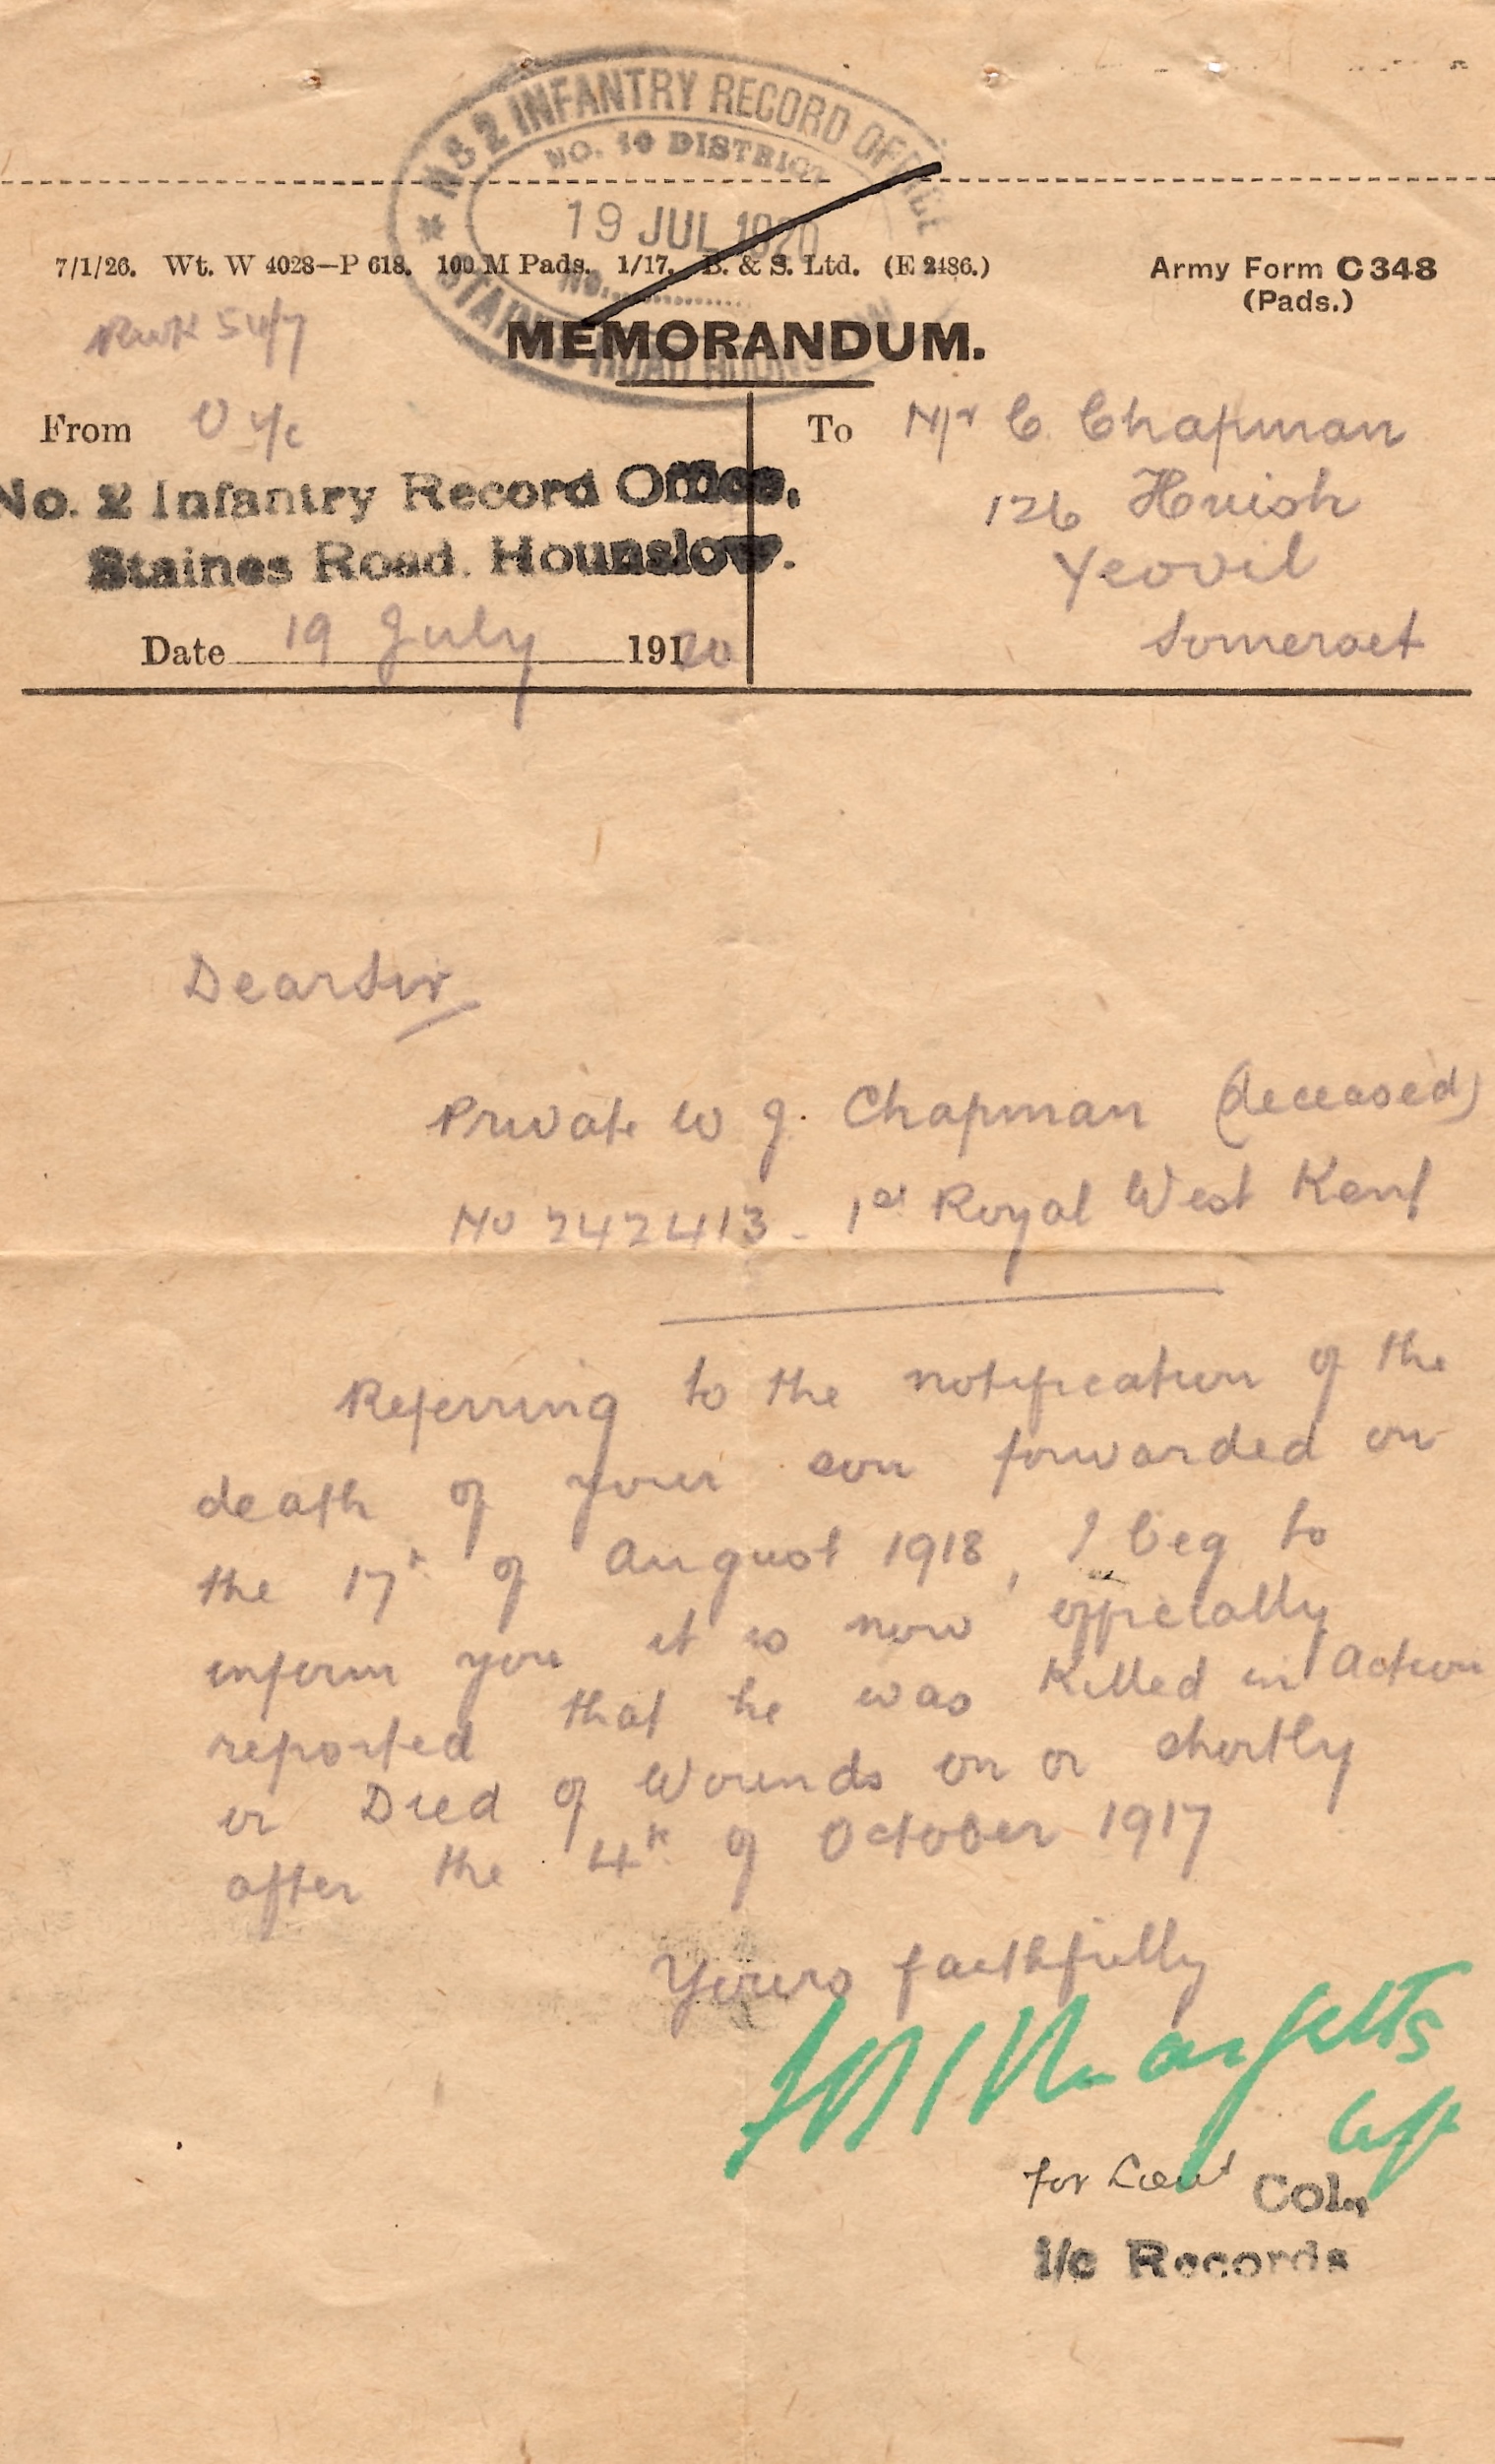 * NO 2 INFANTRY RECORD OFFICE
NO. 10 DISTRICT
19 JUL 1920
No.
STAINES ROAD HOUNSLOW
7/1/26. Wt. W 4028—P 618. 100 M Pads. 1/17. B. & S. Ltd. (E 2486.)
Army Form C 348
(Pads.)
MEMORANDUM.
From O i/c
No. 2 Infantry Record Office,
Staines Road. Hounslow.
Date 19 July 1920
To Mr C. Chapman
126 Huish
Yeovil
Somerset
Dear Sir
Private W J. Chapman (deceased)
No 242413 - 1st Royal West Kent
Referring to the notification of the
death of your son forwarded on
the 17th of August 1918, I beg to
inform you it is now officially
reported that he was Killed in Action
or Died of Wounds on or shortly
after the 4th of October 1917
Yours faithfully
Margetts
for Lieut Col.,
i/c Records